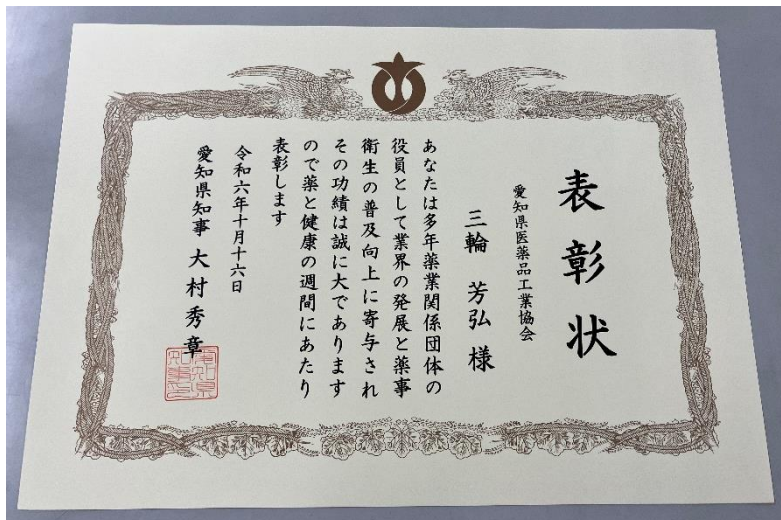 表彰状
愛知県医薬品工業協会
三輪 芳弘 様
あなたは多年薬業関係団体の
役員として業界の発展と薬事
衛生の普及向上に寄与され
その功績は誠に大であります
ので薬と健康の週間にあたり
表彰します
令和六年十月十六日
愛知県知事 大村秀章
愛知県
知事印